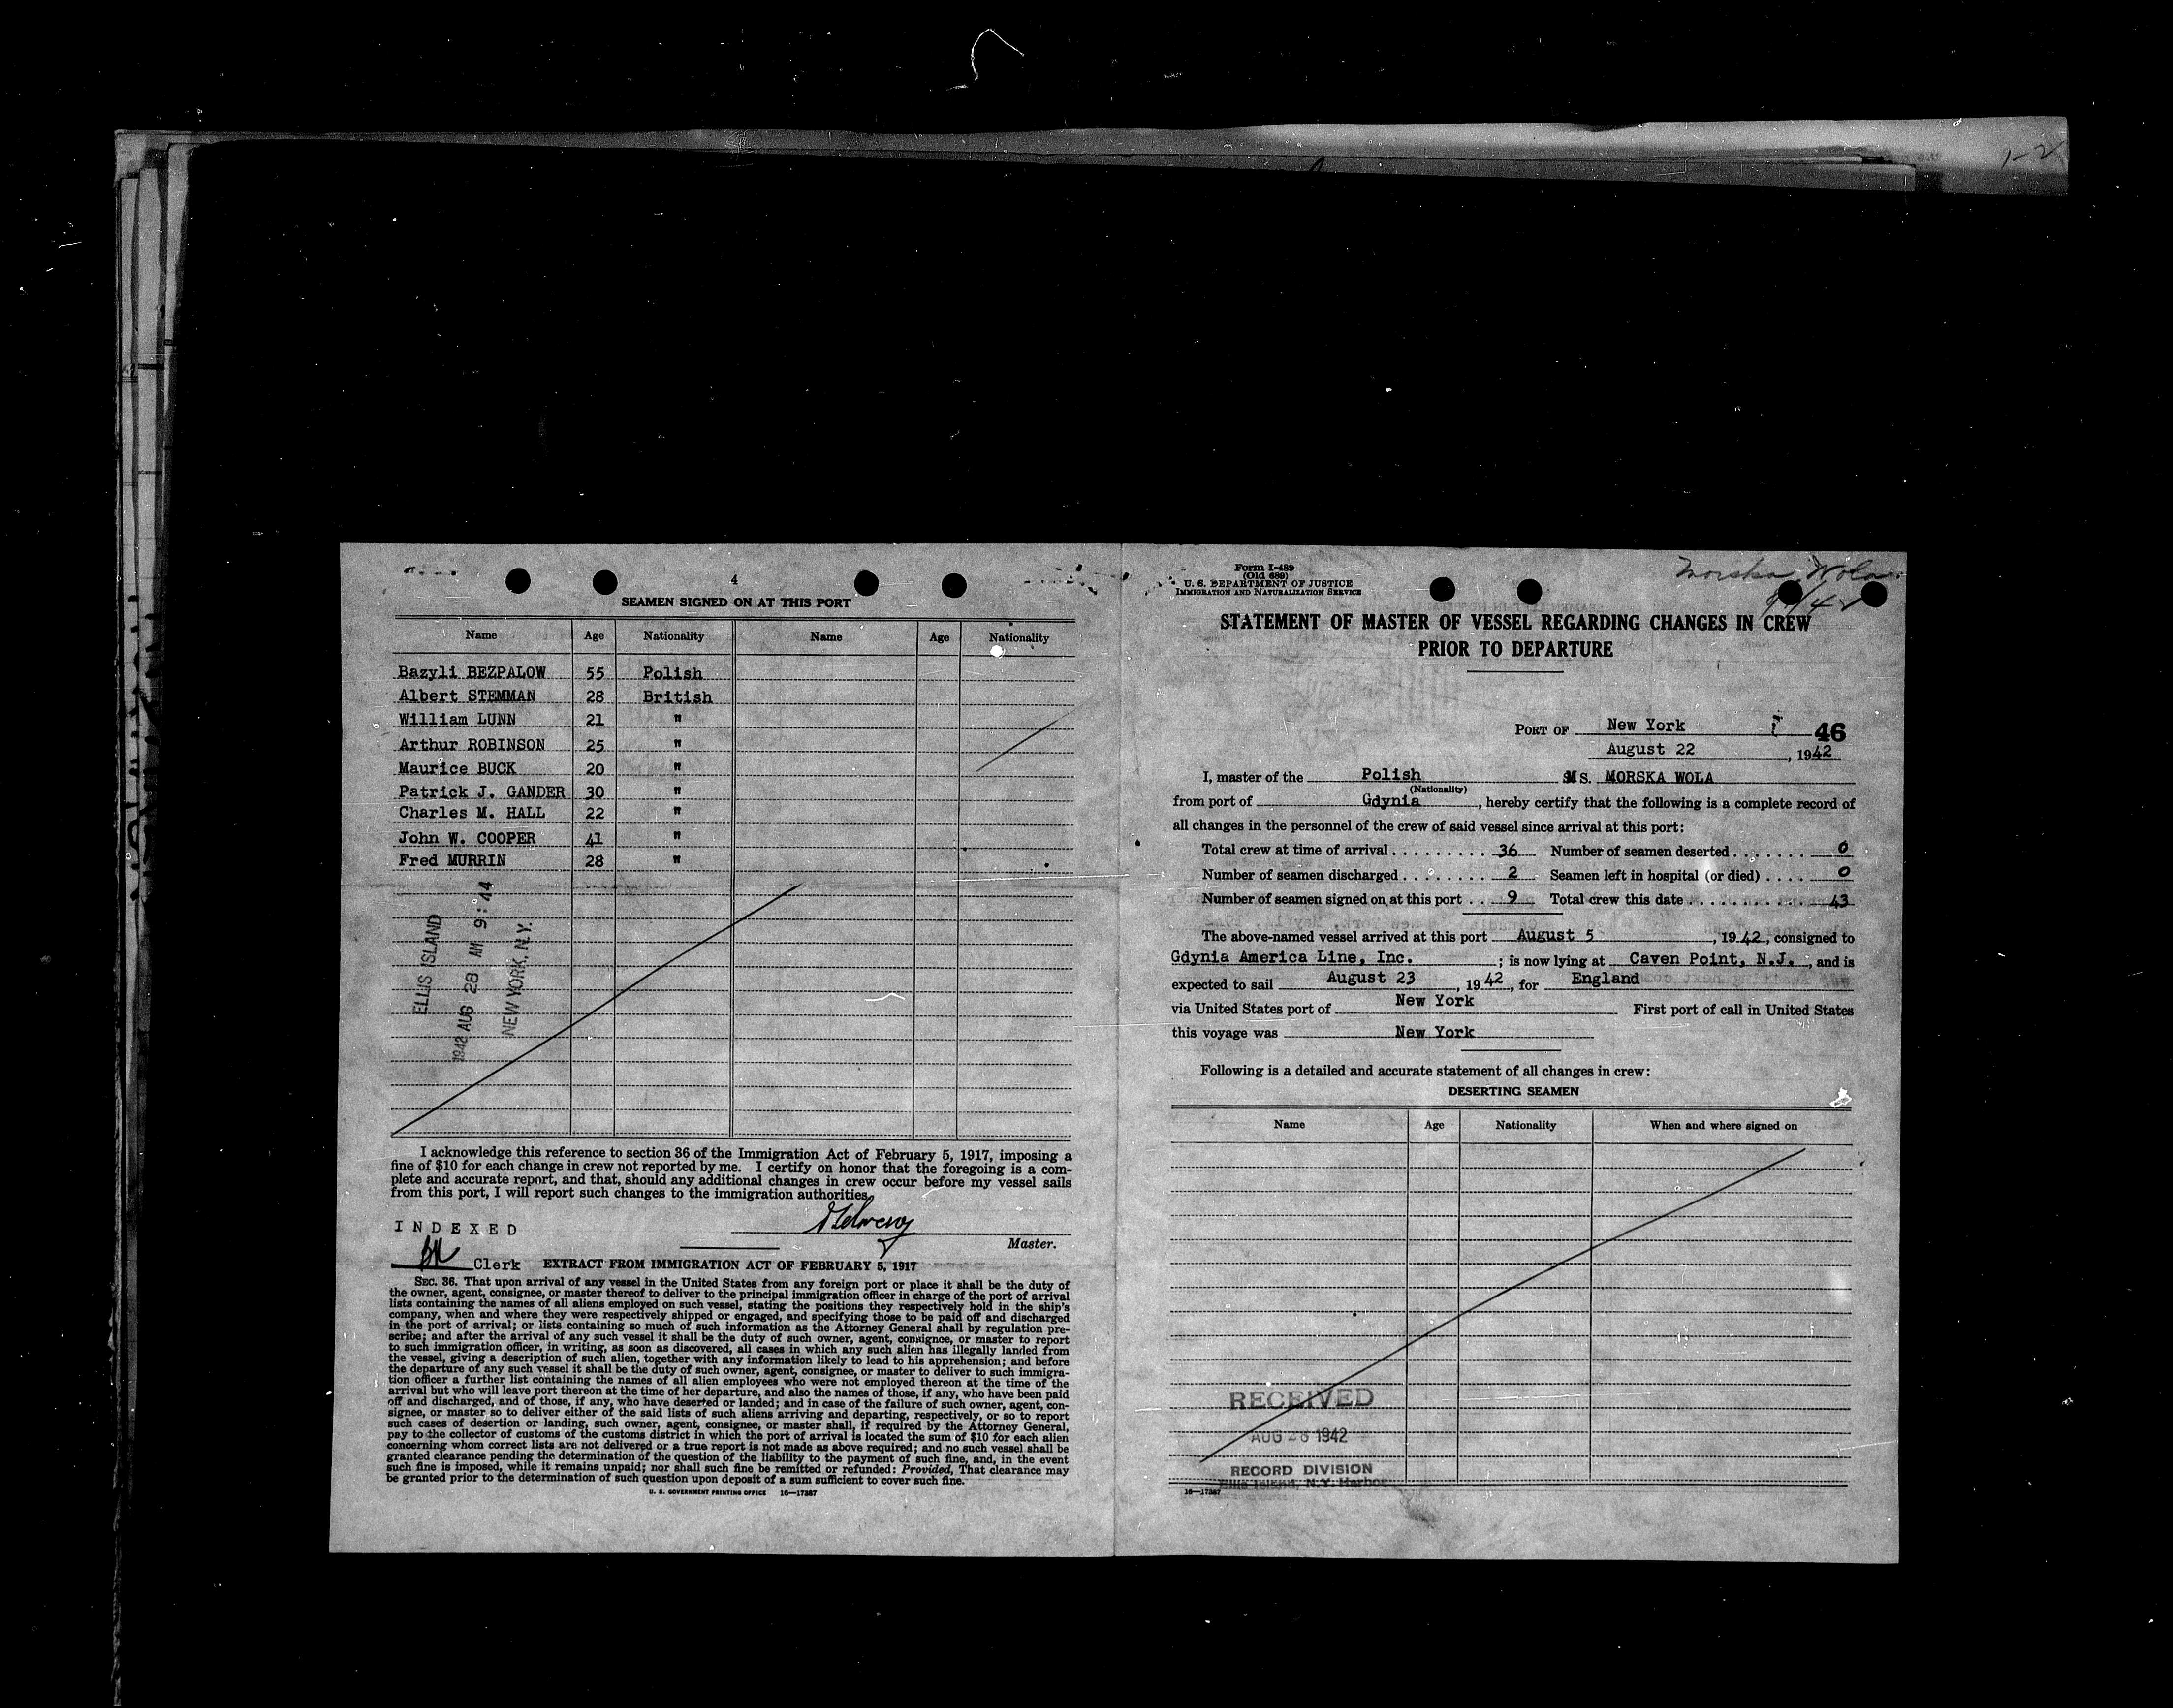 1-2
4
SEAMEN SIGNED ON AT THIS PORT
Name Age Nationality Name Age Nationality
Bazyli BEZPALOW 55 Polish
Albert STEMMAN 28 British
William LUNN 21 "
Arthur ROBINSON 25 "
Maurice BUCK 20 "
Patrick J. GANDER 30 "
Charles M. HALL 22 "
John W. COOPER 41 "
Fred MURRIN 28 "
ELLIS ISLAND
1942 AUG 28 AM 9:44
NEW YORK, N.Y.
I acknowledge this reference to section 36 of the Immigration Act of February 5, 1917, imposing a
fine of $10 for each change in crew not reported by me. I certify on honor that the foregoing is a com-
plete and accurate report, and that, should any additional changes in crew occur before my vessel sails
from this port, I will report such changes to the immigration authorities.
INDEXED
Master.
Clerk EXTRACT FROM IMMIGRATION ACT OF FEBRUARY 5, 1917
SEC. 36. That upon arrival of any vessel in the United States from any foreign port or place it shall be the duty of
the owner, agent, consignee, or master thereof to deliver to the principal immigration officer in charge of the port of arrival
lists containing the names of all aliens employed on such vessel, stating the positions they respectively hold in the ship's
company, when and where they were respectively shipped or engaged, and specifying those to be paid off and discharged
in the port of arrival; or lists containing so much of such information as the Attorney General shall by regulation pre-
scribe; and after the arrival of any such vessel it shall be the duty of such owner, agent, consignee, or master to report
to such immigration officer, in writing, as soon as discovered, all cases in which any such alien has illegally landed from
the vessel, giving a description of such alien, together with any information likely to lead to his apprehension; and before
the departure of any such vessel it shall be the duty of such owner, agent, consignee, or master to deliver to such immigra-
tion officer a further list containing the names of all alien employees who were not employed thereon at the time of the
arrival but who will leave port thereon at the time of her departure, and also the names of those, if any, who have been paid
off and discharged, and of those, if any, who have deserted or landed; and in case of the failure of such owner, agent, con-
signee, or master so to deliver either of the said lists of such aliens arriving and departing, respectively, or so to report
such cases of desertion or landing, such owner, agent, consignee, or master shall, if required by the Attorney General,
pay to the collector of customs of the customs district in which the port of arrival is located the sum of $10 for each alien
concerning whom correct lists are not delivered or a true report is not made as above required; and no such vessel shall be
granted clearance pending the determination of the question of the liability to the payment of such fine, and, in the event
such fine is imposed, while it remains unpaid; nor shall such fine be remitted or refunded: Provided, That clearance may
be granted prior to the determination of such question upon deposit of a sum sufficient to cover such fine.
U. S. GOVERNMENT PRINTING OFFICE 16—17387
Form I-489
(Old 689)
U. S. DEPARTMENT OF JUSTICE
IMMIGRATION AND NATURALIZATION SERVICE
Morska Wola
STATEMENT OF MASTER OF VESSEL REGARDING CHANGES IN CREW
PRIOR TO DEPARTURE
PORT OF New York 46
August 22, 1942
I, master of the Polish MS. MORSKA WOLA
(Nationality)
from port of Gdynia, hereby certify that the following is a complete record of
all changes in the personnel of the crew of said vessel since arrival at this port:
Total crew at time of arrival . . . . . . . . . . 36 Number of seamen deserted . . . . . . . 0
Number of seamen discharged . . . . . . . . 2 Seamen left in hospital (or died) . . . . 0
Number of seamen signed on at this port . . 9 Total crew this date . . . . . . . . . . . . 43
The above-named vessel arrived at this port August 5, 1942, consigned to
Gdynia America Line, Inc. ; is now lying at Caven Point, N.J., and is
expected to sail August 23, 1942, for England
via United States port of New York First port of call in United States
this voyage was New York
Following is a detailed and accurate statement of all changes in crew:
DESERTING SEAMEN
Name Age Nationality When and where signed on
RECEIVED
AUG 28 1942
RECORD DIVISION
Ellis Island, N.Y. Harbor
16—17387